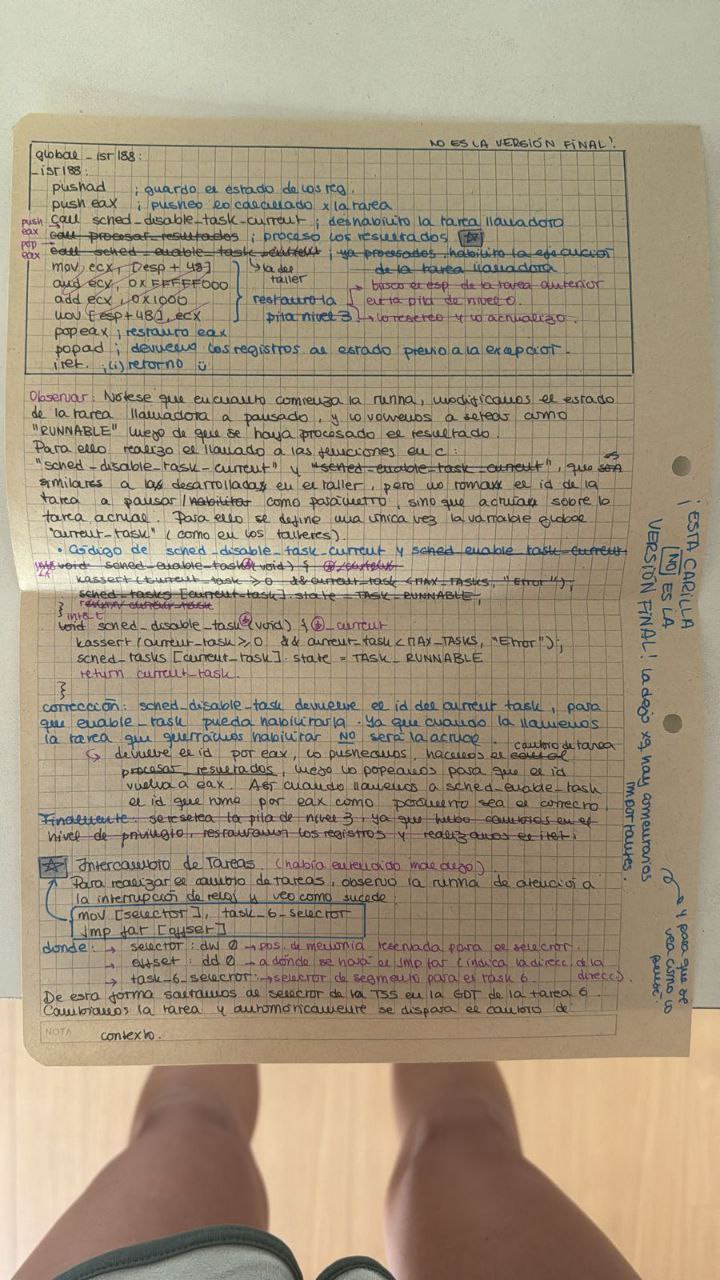 NO ES LA VERSIÓN FINAL!
global _isr188:
_isr188:
pushad ; guardo el estado de los reg.
push eax ; pusheo lo calculado x la tarea
call sched_disable_task_current ; deshabilito la tarea llamadora
push eax
call procesar_resultados ; proceso los resultados ☆
pop eax
call sched_enable_task_current ; ya procesados, habilito la ejecución de la tarea llamadora
mov ecx, [esp + 48]
↳ la del taller
and ecx, 0xFFFFF000
add ecx, 0x1000
mov [esp+48], ecx
restauro la pila nivel 3
→ busco el esp de la tarea anterior en la pila de nivel 0.
→ lo reseteo y lo actualizo.
pop eax ; restauro eax
popad ; devuelvo los registros al estado previo a la excepción.
iret. ; (i) retorno ü
Observar: Nótese que en cuanto comienza la rutina, modificamos el estado
de la tarea llamadora a pausado, y lo volvemos a setear como
"RUNNABLE" luego de que se haya procesado el resultado.
Para ello realizo el llamado a las funciones en c:
"sched_disable_task_current" y "sched_enable_task_current", que son
similares a las desarrolladas en el taller, pero no toman el id de la
tarea a pausar/habilitar como parámetro, sino que actúan sobre la
tarea actual. Para ello se define una única vez la variable global
"current_task" (como en los talleres).
• Código de sched_disable_task_current y sched_enable_task_current
void sched_enable_task (void) {
kassert (current_task ≥ 0 && current_task < MAX_TASKS, "Error");
sched_tasks [current_task].state = TASK_RUNNABLE;
return current_task
}
int8_t
void sched_disable_task (void) { _current
kassert (current_task ≥ 0 && current_task < MAX_TASKS, "Error");
sched_tasks [current_task].state = TASK_RUNNABLE
return current_task.
}
corrección: sched_disable_task devuelve el id del current task, para
que enable_task pueda habilitarla. Ya que cuando la llamemos
la tarea que querramos habilitar NO será la actual.
↳ devuelve el id por eax, lo pusheamos, hacemos el cambio de tarea
procesar_resultados, luego lo popeamos para que el id
vuelva a eax. Así cuando llamemos a sched_enable_task
el id que tome por eax como parámetro sea el correcto.
Finalmente: se resetea la pila de nivel 3, ya que hubo cambios en el
nivel de privilegio, restauramos los registros y realizamos el iret.
☆ Intercambio de Tareas. (había entendido mal algo)
Para realizar el cambio de tareas, observo la rutina de atención a
la interrupción de reloj y veo como sucede:
mov [selector], task_6_selector
jmp far [offset]
donde: → selector: dw 0 → pos. de memoria reservada para el selector.
→ offset: dd 0 → a donde se hará el jmp far (indica la direcc. de la direcc)
→ task_6_selector: → selector de segmento para el task 6
De esta forma saltamos al selector de la TSS en la GDT de la tarea 6.
Cambiamos la tarea y automáticamente se dispara el cambio de
NOTA
contexto.
¡ESTA CARILLA
NO ES LA
VERSIÓN FINAL! la dejo xq hay comentarios
importantes.
↳ y para que se
vea como lo
pensé.